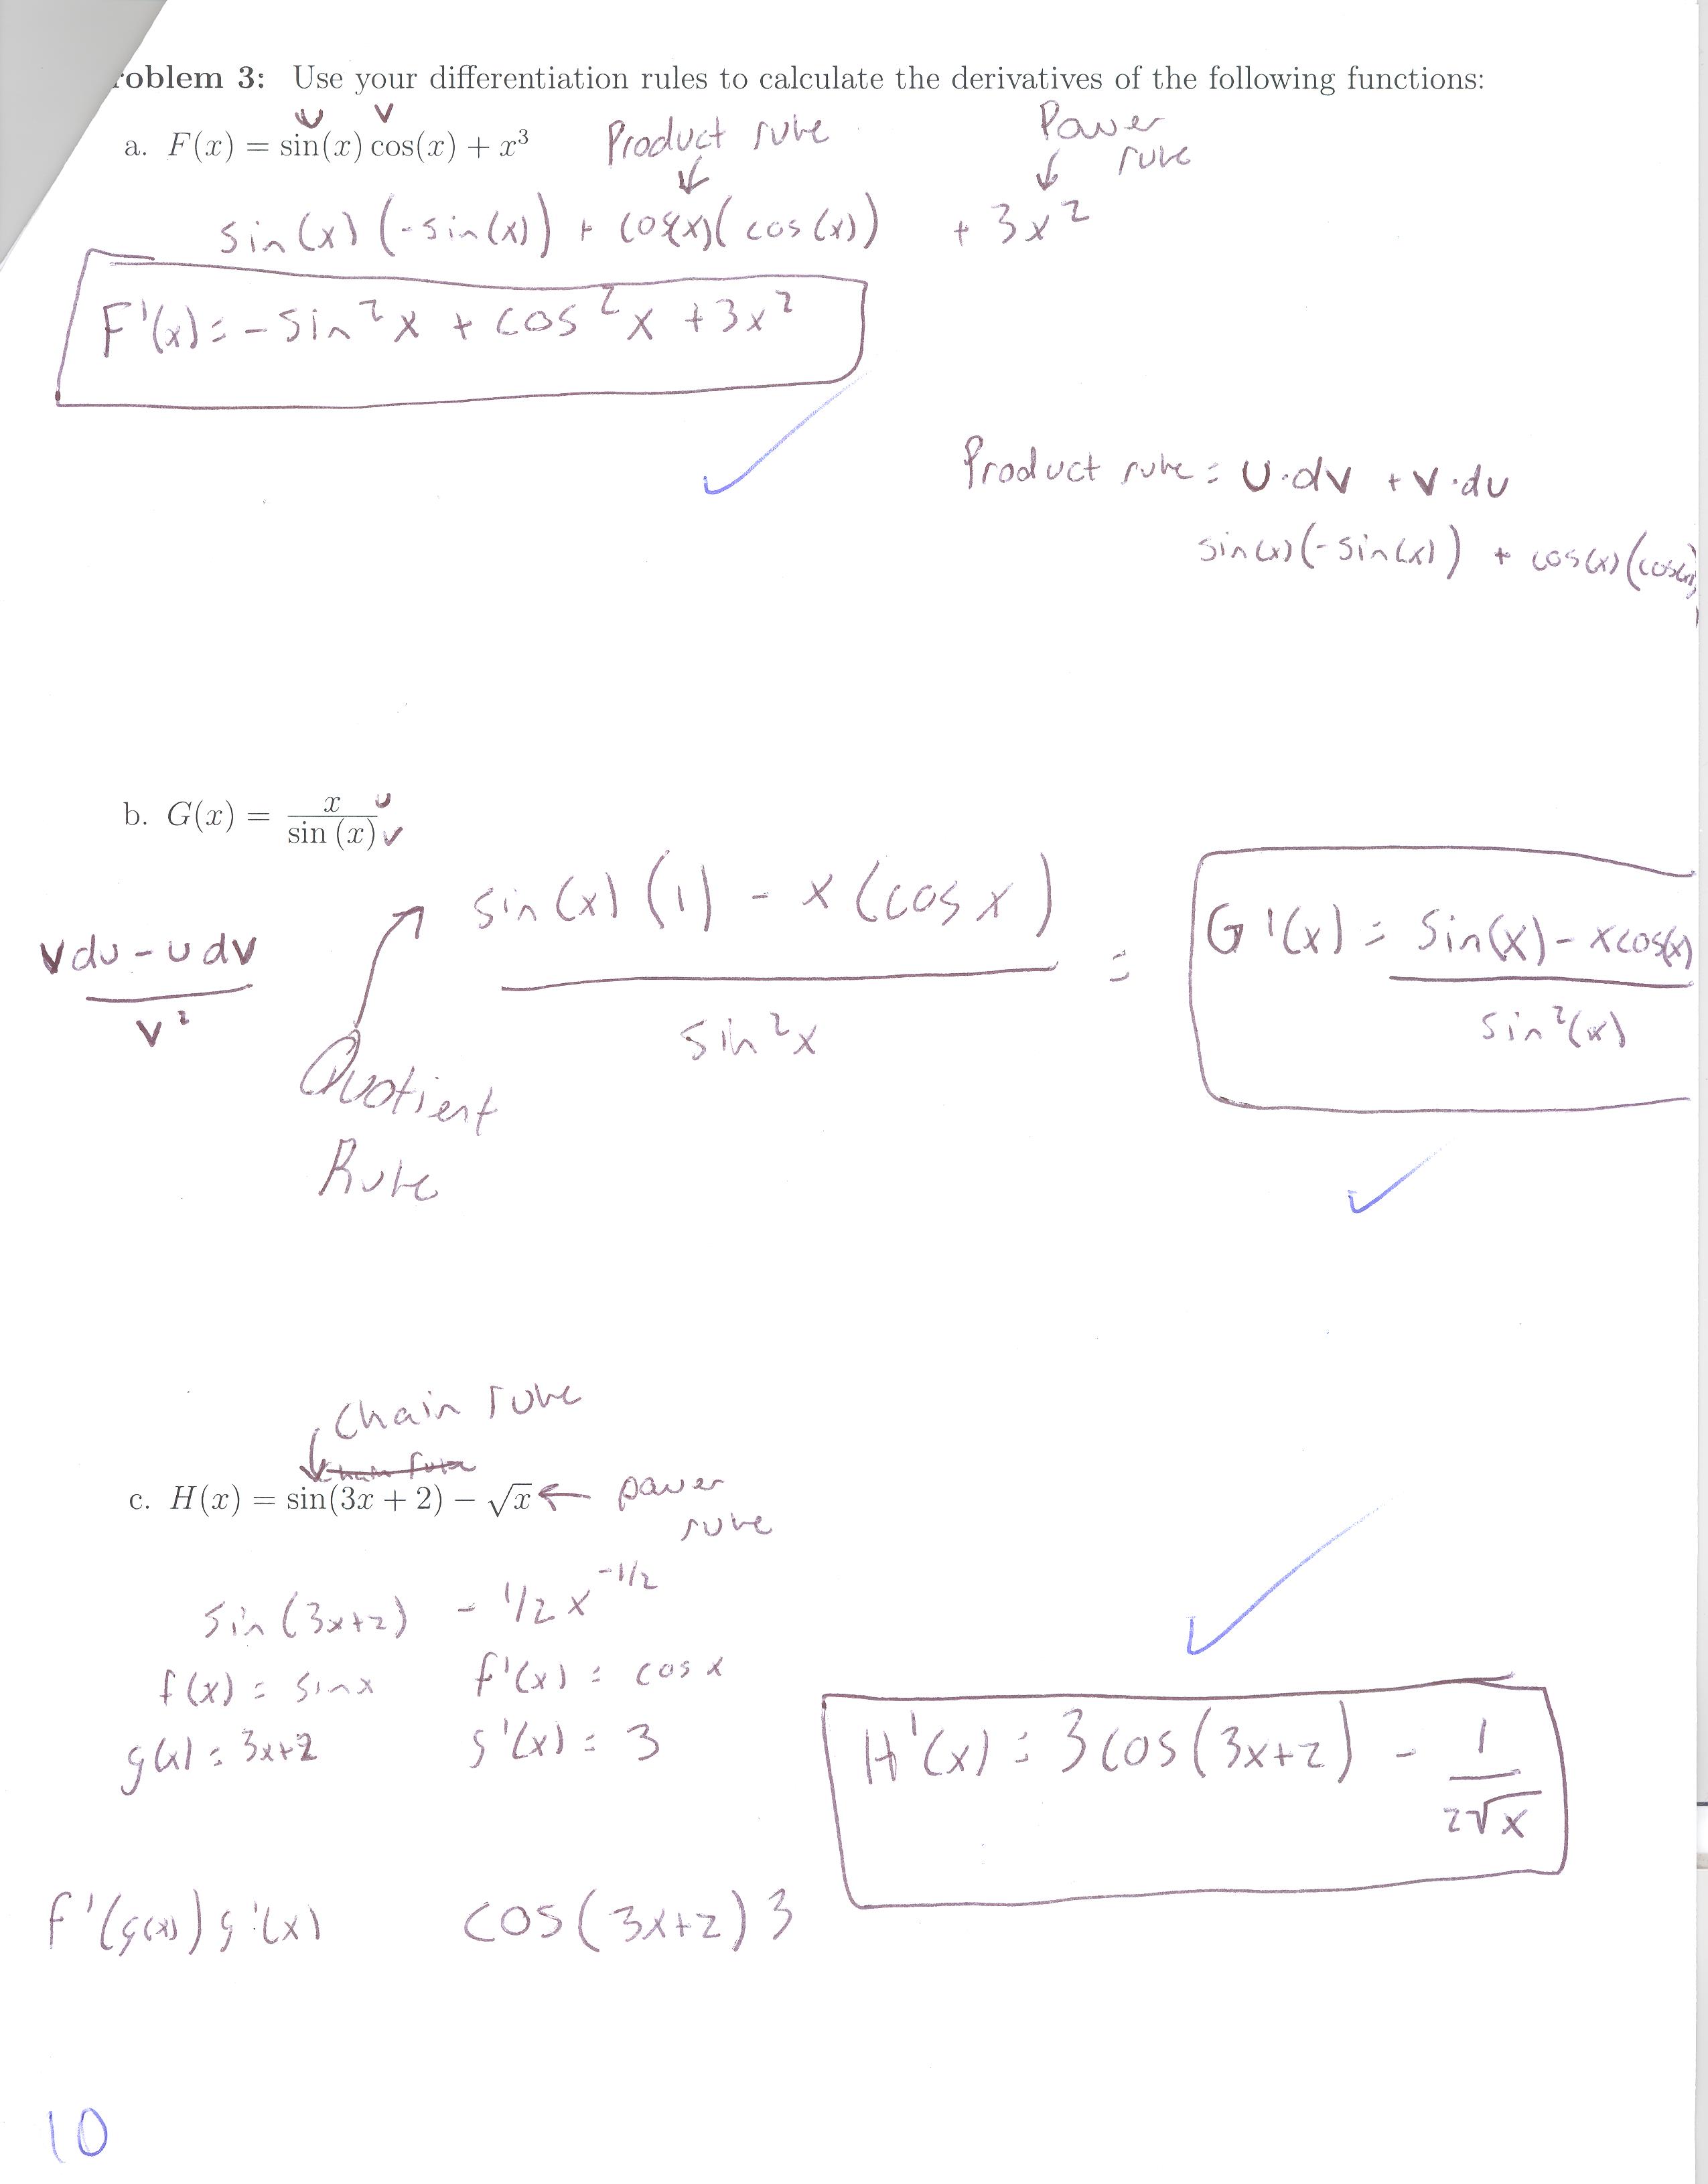 roblem 3: Use your differentiation rules to calculate the derivatives of the following functions:
u v
a. F(x) = sin(x) cos(x) + x³
Product rule
Power
rule
sin(x) (-sin(x)) + cos(x)(cos(x)) + 3x²
F'(x) = -sin²x + cos²x + 3x²
Product rule = u·dv + v·du
sin(x)(-sin(x)) + cos(x)(cos(x)
b. G(x) = x/sin (x)
u
v
vdu - udv / v²
Quotient
Rule
sin(x)(1) - x(cosx) / sin²x =
G'(x) = sin(x) - xcos(x) / sin²(x)
Chain rule
c. H(x) = sin(3x + 2) − √x ← power
rule
sin(3x+2) - 1/2 x^-1/2
f(x) = sinx f'(x) = cosx
g(x) = 3x+2 g'(x) = 3
H'(x) = 3cos(3x+2) - 1/2√x
f'(g(x))g'(x) cos(3x+2)3
10